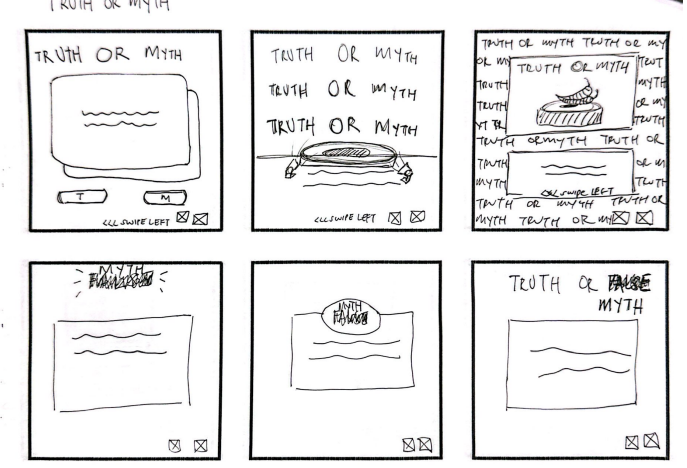 TRUTH OR MYTH
TRUTH OR MYTH
T M
<<< SWIPE LEFT
TRUTH OR MYTH
TRUTH OR MYTH
TRUTH OR MYTH
<<< SWIPE LEFT
TRUTH OR MYTH TRUTH OR MY
OR MY TRUT
TRUTH OR MYTH
TRUTH MYTH
TRUTH OR MY
TRUTH
TRUTH OR MYTH TRUTH OR
TRUTH OR M
MYTH TRUTH
<<< SWIPE LEFT
TRUTH OR MYTH TRUTH OR
MYTH TRUTH OR MY
MYTH
MYTH
TRUTH OR
MYTH